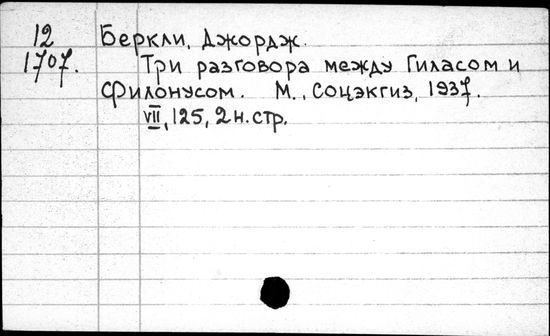 12 Беркли, Джордж.
1707. Три разговора между Гиласом и
Филонусом. М., Соцэкгиз, 1937.
VII, 125, 2 н. стр.